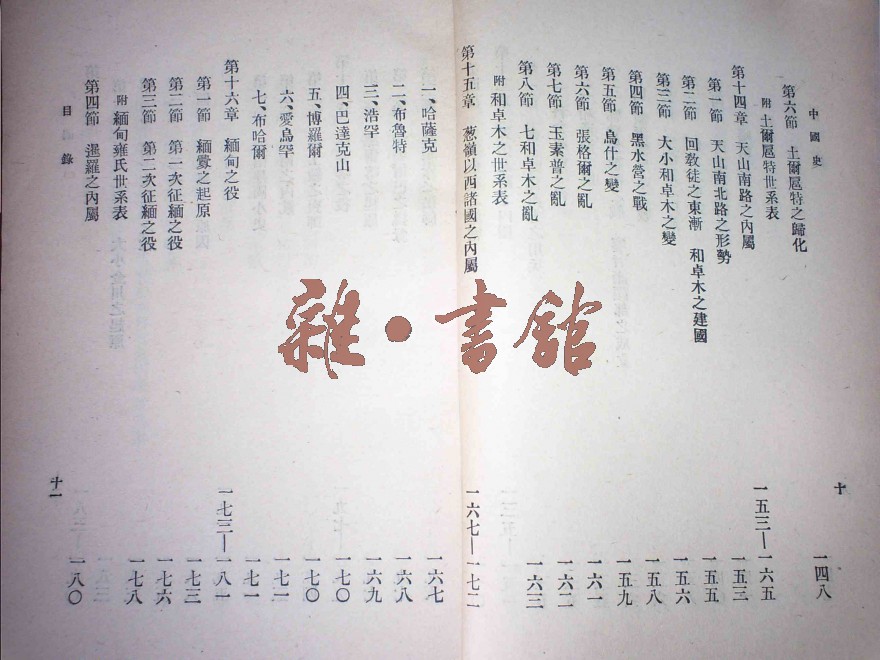 中國史
第六節 土爾扈特之歸化 一四八
附 土爾扈特世系表
第十四章 天山南路之內屬 一五三—一六五
第一節 天山南北路之形勢 一五三
第二節 回敎徒之東漸 和卓木之建國 一五五
第三節 大小和卓木之變 一五六
第四節 黑水營之戰 一五八
第五節 烏什之變 一五九
第六節 張格爾之亂 一六一
第七節 玉素普之亂 一六二
第八節 七和卓木之亂 一六三
附 和卓木之世系表
第十五章 葱嶺以西諸國之內屬 一六七—一七二
十
一、哈薩克 一六七
二、布魯特 一六八
三、浩罕 一六九
四、巴達克山 一七〇
五、博羅爾 一七〇
六、愛烏罕 一七一
七、布哈爾 一七一
第十六章 緬甸之役 一七三—一八一
第一節 緬釁之起原 一七三
第二節 第一次征緬之役 一七六
第三節 第二次征緬之役 一七八
附 緬甸雍氏世系表
第四節 暹羅之內屬 一八〇
目錄
十一
雜·書館